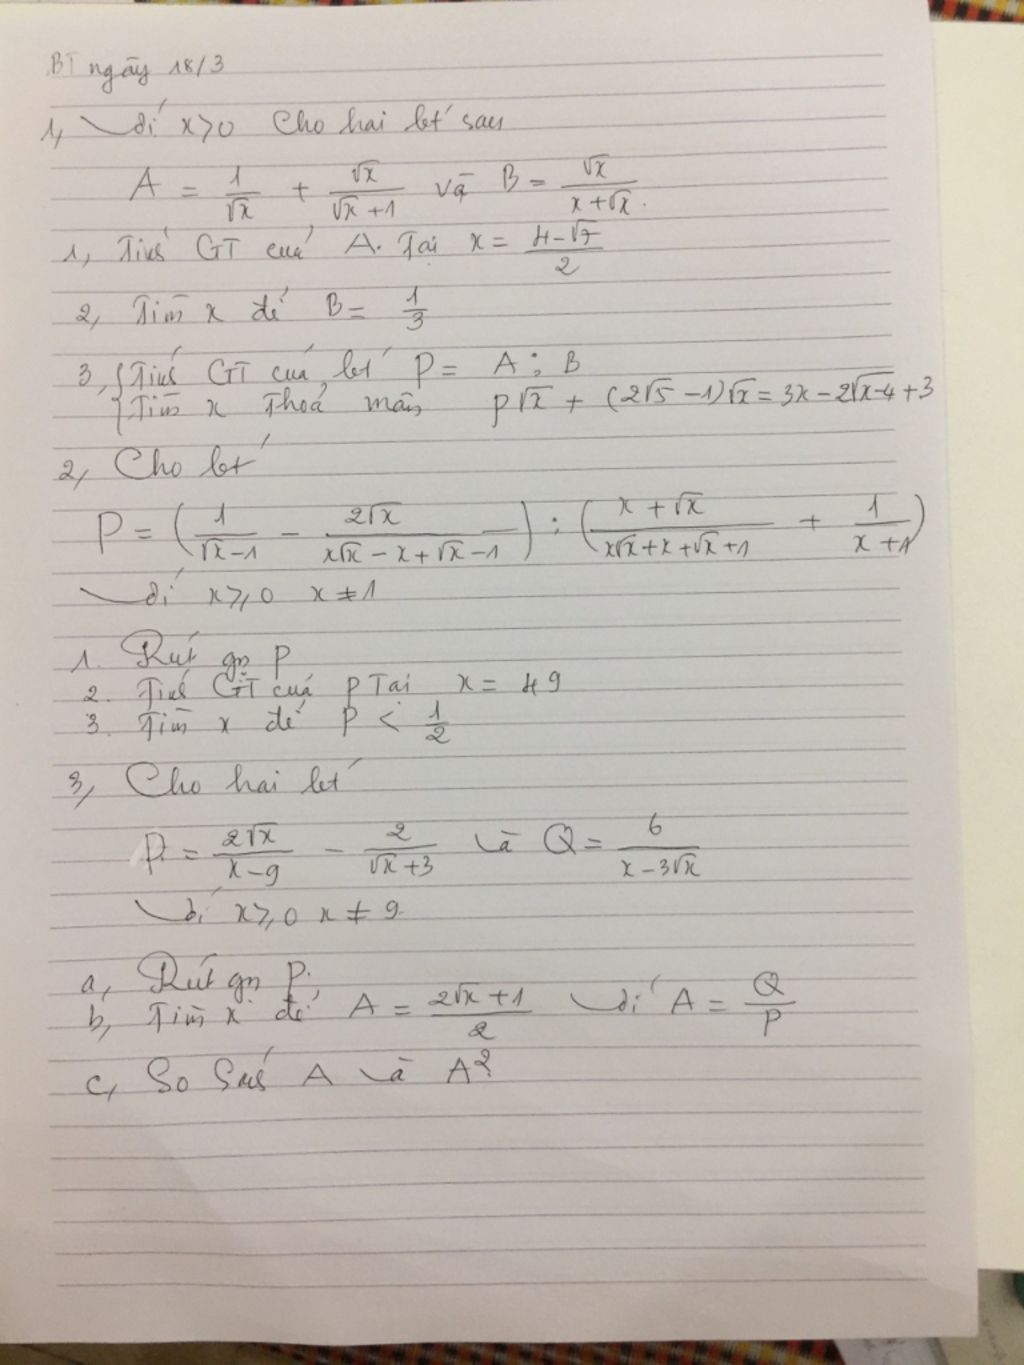 BT ngày 18/3
1, Với x>0 Cho hai bt' sau
A = 1/√x + √x/(√x+1) và B = √x/(x+√x).
1, Tính GT của A. Tại x = (4-√7)/2
2, Tìm x để B = 1/3
3, {Tính GT của bt' P = A : B
{Tìm x Thoả mãn P√x + (2√5-1)√x = 3x-2√(x-4)+3
2, Cho bt'
P = (1/(√x-1) - 2√x/(x√x-x+√x-1)) : ((x+√x)/(x√x+x+√x+1) + 1/(x+1))
Với x⩾0 x≠1
1. Rút gọn P
2. Tính GT của P Tại x = 49
3. Tìm x để P < 1/2
3, Cho hai bt'
P = 2√x/(x-9) - 2/(√x+3) và Q = 6/(x-3√x)
Với x⩾0 x≠9.
a, Rút gọn P.
b, Tìm x để A = (2√x+1)/2 Với A = Q/P
c, So Sánh A và A²